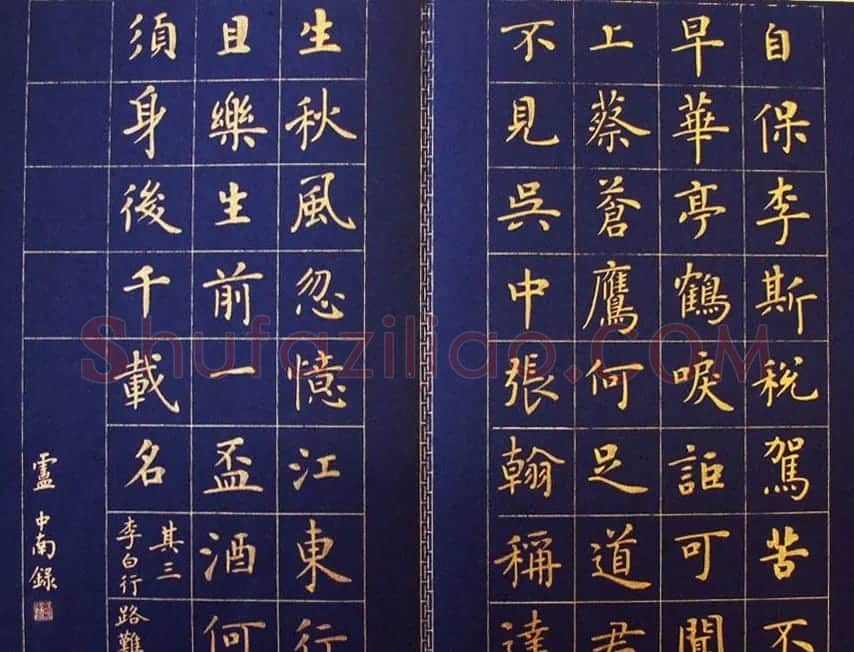 自保李斯税駕苦不
早華亭鶴唳詎可聞
上蔡蒼鷹何足道君
不見吳中張翰稱達
生秋風忽憶江東行
且樂生前一盃酒何
須身後千載名
其三
李白行路難
盧中南錄
Shufaziliao.COM